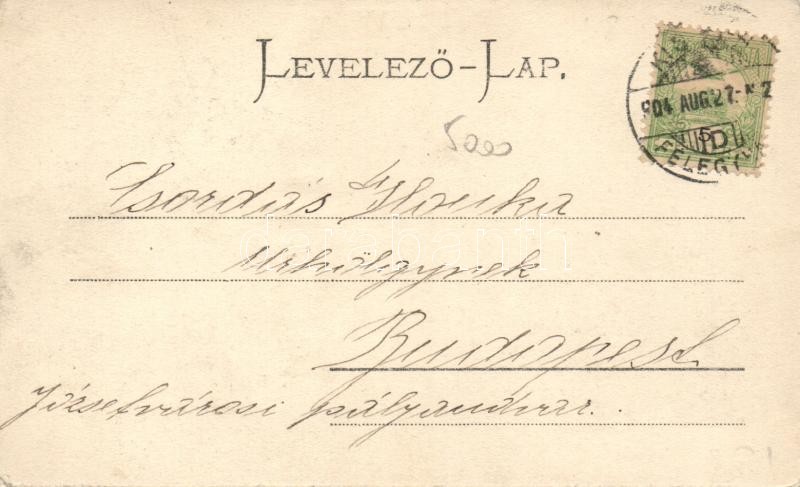 LEVELEZŐ-LAP.
904 AUG. 27.
FÉLEGY
5000
Csordás Ilonka
Urhölgynek
Budapest
Józsefvárosi pályaudvar.